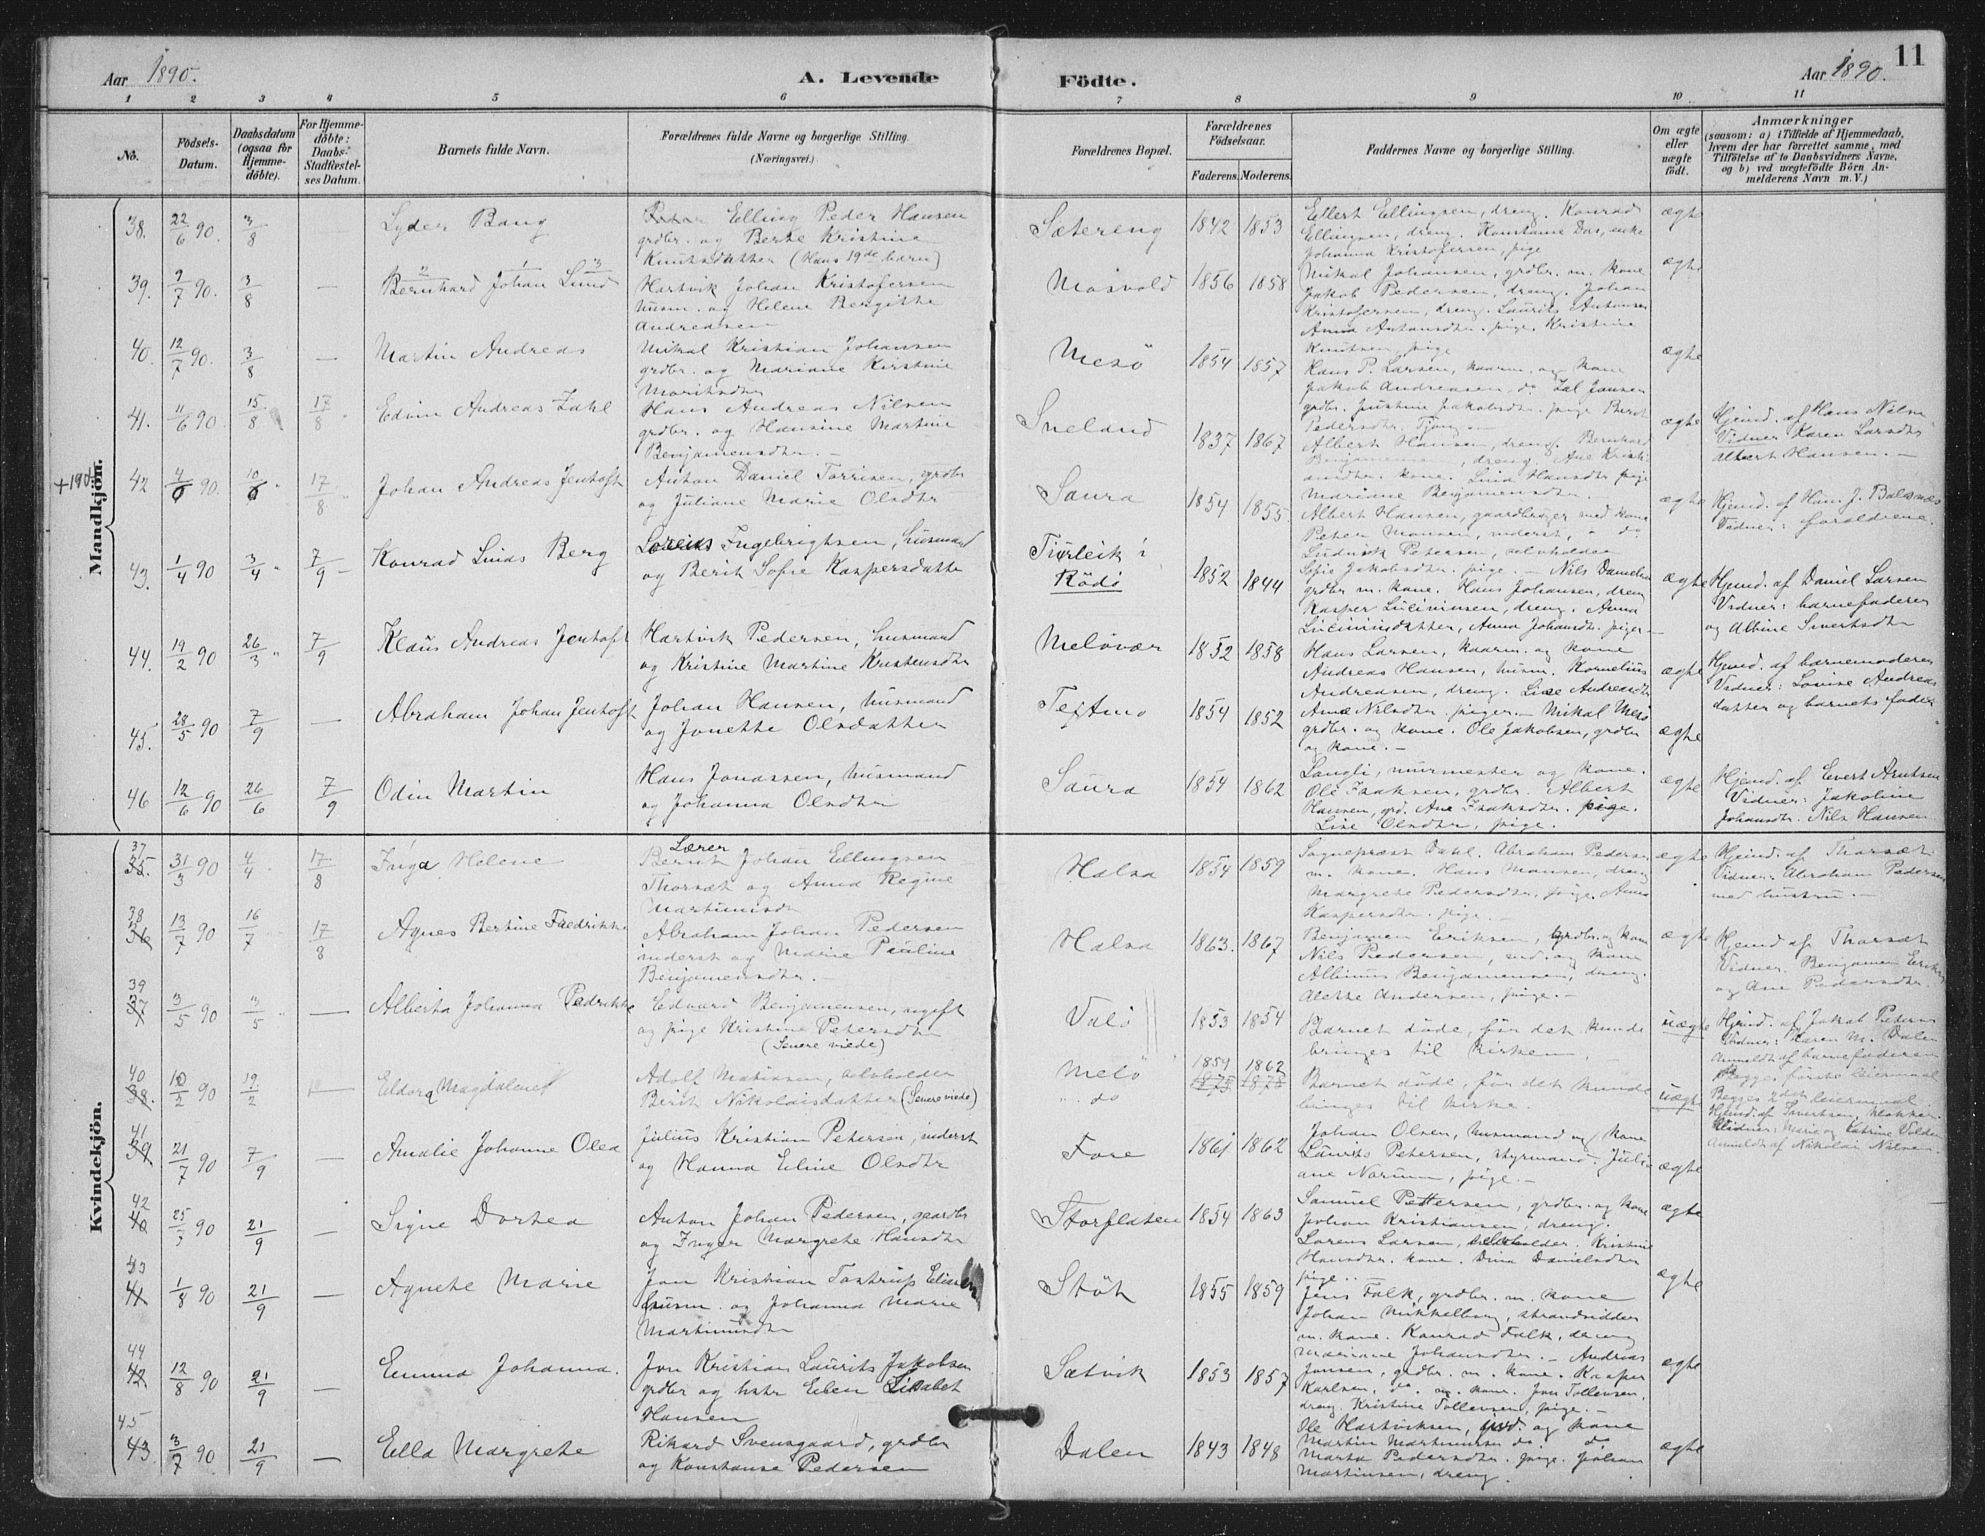 11
Aar 1890.
A. Levende
Födte.
Aar 1890.
1 2 3 4 5 6 7 8 9 10 11
No.
Födsels-
Datum.
Daabsdatum
(ogsaa for
Hjemme-
döbte).
For Hjemme-
döbte:
Daabs-
Stadfæstel-
ses Datum.
Barnets fulde Navn.
Forældrenes fulde Navne og borgerlige Stilling.
(Næringsvei.)
Forældrenes Bopæl.
Forældrenes
Födselsaar.
Faderens. Moderens.
Faddernes Navne og borgerlige Stilling.
Om ægte
eller
uægte
födt.
Anmærkninger
(saasom: a) i Tilfælde af Hjemmedaab,
hvem der har forrettet samme, med
Tilföielse af to Daabsvidners Navne,
og b) ved uægtefödte Börn An-
melderens Navn m. V.)
Mandkjön.
38. 22/6 90. 3/8 — Lyder Bang
Elling Peder Hansen
grdbr. og Berte Kristine
Knutsdatter (Hans 19de barn)
Sætereng 1842 1853
Ellert Ellingsen, dreng. Konrad
Ellingsen, dreng. Konstanse Das, enke
Johanna Kristofersen, pige
ægte
39. 9/7 90. 3/8 — Bernhard Johan Lund
Hartvik Johan Kristofersen
husm. og Helene Bergitte
Andreasen
Mosvold 1856 1858
Mikal Johansen, grdbr. m. kone
Jakob Pedersen, dreng. Johan
Kristofersen, dreng. Laurits Antonsen
Anna Antonsdtr. pige. Kristine
Knutsen, pige
ægte
40. 12/7 90. 3/8 — Martin Andreas
Mikal Kristian Johansen
grdbr. og Mariane Kirstine
Moritsdtr
Mesö 1854 1857
Hans P. Larsen, kaarm. og kone
Jakob Andreasen, do. Zal Jansen
grdbr. Justine Jakobsdtr. pige Berit
Pedersdtr. Tjong
ægte
41. 11/6 90 15/8 17/8 Edvin Andreas Zahl
Hans Andreas Nilsen
grdbr. og Hansine Martine
Benjamensdtr. —
Sneland 1837 1867
Albert Hansen, dreng. Bernhard
Benjamensen, dreng. Ane Kristi-
ansdtr. kone. Lina Hansdtr pige
Mariane Benjamensdtr.
ægte
Hjemd. af Hans Nilsen
Vidner Karen Larsdtr
Albert Hansen. —
+190
42 4/6 90. 10/6 17/8 Johan Andreas Jentoft
Anton Daniel Torrisen, grdbr
og Juliane Marie Olsdtr
Saura 1854 1855
Albert Hansen, gaardbruger med kone
Peter Monsen, inderst, " do
Ludvik Petersen, selveholder
Sofie Jakobsdtr. pige.
ægte
Hjemd. af Han. J. Balsnæs
Vidner: foreldrene.
43. 1/4 90 3/4 7/9 Konrad Linds Berg
Ingebrigtsen, husmand
og Berit Sofie Kaspersdatter
i
Rödö
1852 1844
Nils Danielsen
grdbr m. kone. Hans Johansen, dreng
Kasper Lucinusen, dreng. Anna
Lucinusdatter, Anna Johansdtr. piger —
ægte
Hjemd. af Daniel Larsen
Vidner: barnefaderen
og Albine Sivertsdtr
44. 19/2 90 26/3 7/9 Klaus Andreas Jentoft
Hartvik Pedersen, husmand
og Kristine Martine Kristensdtr
Melövær 1852 1858
Hans Larsen, kaarm. og kone
Andreas Hansen, husm. Kornelius
Andreasen, dreng. Lise Andreasdtr
Anne Nilsdtr. piger. —
ægte
Hjemd. af barnemoderen
Vidner: Lovise Andreas
datter og barnets fader
45. 28/5 90 7/9 — Abraham Johan Jentoft
Johan Hansen, husmand
og Jonette Olsdatter
Texmo 1854 1852
Mikal Mesö
grdbr. og kone. Ole Jakobsen, grdbr
og kone. —
ægte
46 12/6 90 26/6 7/9 Odin Martin
Hans Jonassen, husmand
og Johanna Olsdtr
Saura 1854 1862
Langli, murmester og kone.
Ole Isaksen, grdbr. Albert
Hansen, grd. Ane Isaksdtr. pige.
Lise Olsdtr, pige.
ægte
Hjemd. af Evert Arntsen
Vidner: Jakobine
Johansdtr. Nils Hansen
Kvindekjön.
37 35. 31/3 90 4/4 17/8 Inga Helene
Lærer
Bernt Johan Ellingsen
Thorsæt og Anna Regine
Martinusdtr
Halsa 1854 1859
Sogneprest Dahl. Abraham Pedersen
m. kone. Hans Monsen, dreng
Margrete Pedersdtr. pige. Anna
Kaspersdtr. pige. —
ægte
Hjemd. af Thorsæt
Vidner: Abraham Pedersen
med hustru. —
38 36 13/7 90 16/7 17/8 Agnes Bertine Fredrikke
Abraham Johan Pedersen
inderst og Marie Pauline
Benjamensdtr. —
Halsa 1863. 1867
Benjamen Eriksen, grdbr. og kone
Nils Pedersen, ind. og kone
Albinus Benjamensen, dreng.
Alette Andersen, pige. —
ægte
Hjemd. af Thorsæt
Vidner. Benjamen Eriksen
og Ane Pedersdtr
39 37 3/5 90 3/5 — Alberta Johanna Pedrikke
Edvard Benjamensen, ugift
og pige Kristine Petersdtr
(Senere viede)
Valö 1853 1854
Barnet döde, för det kunde
bringes til kirken.
uægte
Hjemd. af Jakob Pedersen
Vidner: Karen M. Dalen
Anmeldt af barnefaderen
Begges förste leiermaal
40 38. 10/2 90 19/2 — Eldora Magdalene
Adolf Matiassen, selveholder
Berit Nikolaisdatter (Senere viede)
Melö 1859 1862
" do 1875 1878
Barnet döde, för det kunde
bringes til kirke.
uægte
Begges 2det leiermaal
Hjemd. af Sivertsen, klokker
Vidner: Marie og Katrine Vilden
Anmeldt af Nikolai Nilsen.
41 39 21/7 90 7/9 Amalie Johanne Olea
Julius Kristian Petersen, inderst
og Hanna Eline Olsdtr
Fore 1861 1862
Johan Olsen, husmand og kone
Laurits Petersen, styrmand. Juli-
ane Norum, pige. —
ægte
42 40 25/3 90 21/9 — Signe Dortea
Anton Johan Pedersen, gaardbr
og Inger Margrete Hansdtr
Storflaten 1854 1863
Samuel Pettersen, grdbr. og kone
Johan Kristiansen, dreng.
Lorens Larsen, selveholder. Kristine
Hansdtr. kone. Dina Danielsdtr
pige.. —
ægte
43 41 1/8 90 21/9 — Agnete Marie
Jon Kristian Tostrup Eliasen
husm. og Johanna Marie
Martinusdtr
Stöt 1855 1859
Jens Falk, grdbr. m. kone
Johan Mikkelborg, strandsidder
m. kone. Konrad Falk, dreng
Mariane Johansdtr. —
ægte
44 42 12/8 90 21/9 — Emma Johanna.
Jon Kristian Laurits Jakobsen
grdbr og hstr Elen Lisabet
Hansen
Sætvik 1853 1857
Andreas
Jonsen, grdbr. m. kone. Kasper
Karlsen, do. m. kone. Jon Tollevsen,
dreng. Kristine Tollevsen, pige. —
ægte
45 43. 3/7 90 21/9 — Ella Margrete
Rikard Svensgaard, grdbr
og Konstanse Pedersen
Dalen 1843 1848
Ole Hartviksen, ind. og kone
Martin Martinusen do. do
Marta Pedersdtr. pige. Johan
Martinsen, dreng.
ægte